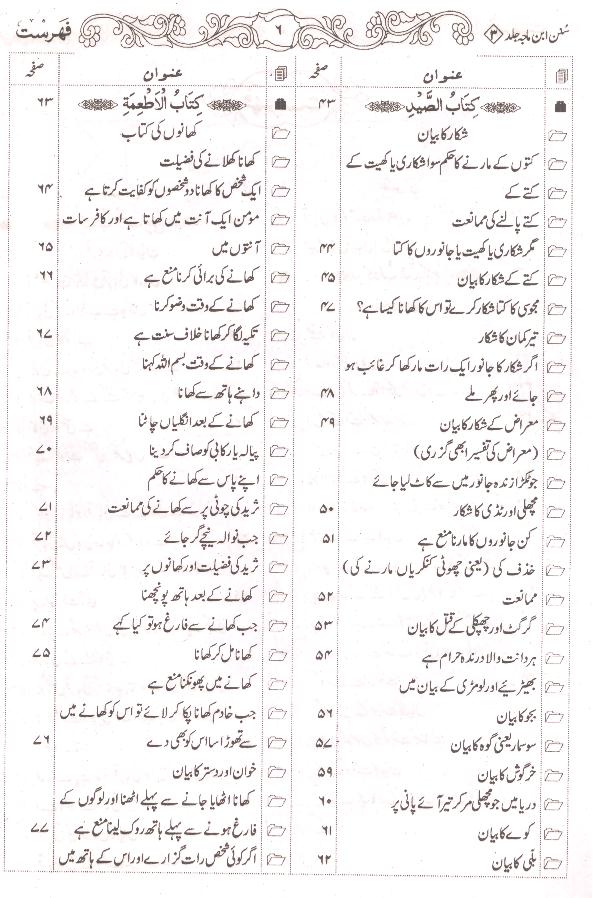 سُنن ابن ماجہ جلد ۳
۶
فہرست
عنوان
صفحہ
كِتَابُ الصَّيْدِ
۴۳
شکار کا بیان
کتوں کے مارنے کا حکم سوا شکاری یا کھیت کے
کتے کے
کتے پالنے کی ممانعت
مگر شکاری یا کھیت یا جانوروں کا کتا
۴۴
کتے کے شکار کا بیان
۴۵
مجوسی کا کتا شکار کرے تو اس کا کھانا کیسا ہے؟
۴۷
تیر کمان کا شکار
اگر شکار کا جانور ایک رات مار کھا کر غائب ہو
جائے اور پھر ملے
۴۸
معراض کے شکار کا بیان
۴۹
(معراض کی تفسیر ابھی گزری)
جو ٹکڑا زندہ جانور میں سے کاٹ لیا جائے
مچھلی اور ٹڈی کا شکار
۵۰
کن جانوروں کا مارنا منع ہے
۵۱
خذف کی (یعنی چھوٹی کنکریاں مارنے کی)
ممانعت
۵۲
گرگٹ اور چھپکلی کے قتل کا بیان
۵۳
ہر دانت والا درندہ حرام ہے
۵۴
بھیڑیئے اور لومڑی کے بیان میں
بجو کا بیان
۵۶
سوسمار یعنی گوہ کا بیان
۵۷
خرگوش کا بیان
۵۹
دریا میں جو مچھلی مر کر تیر آئے پانی پر
۶۰
کوے کا بیان
۶۱
بلّی کا بیان
۶۲
عنوان
صفحہ
كِتَابُ الْاَطْعِمَةِ
۶۳
کھانوں کی کتاب
کھانا کھلانے کی فضیلت
ایک شخص کا کھانا دو شخصوں کو کفایت کرتا ہے
۶۴
مؤمن ایک آنت میں کھاتا ہے اور کافر سات
آنتوں میں
۶۵
کھانے کی برائی کرنا منع ہے
۶۶
کھانے کے وقت وضو کرنا
تکیہ لگا کر کھانا خلاف سنت ہے
۶۷
کھانے کے وقت بسم اللہ کہنا
داہنے ہاتھ سے کھانا
۶۸
کھانے کے بعد انگلیاں چاٹنا
۶۹
پیالہ یا رکابی کو صاف کر دینا
۷۰
اپنے پاس سے کھانے کا حکم
ثرید کی چوٹی پر سے کھانے کی ممانعت
۷۱
جب نوالہ نیچے گر جائے
۷۲
ثرید کی فضیلت اور کھانوں پر
۷۳
کھانے کے بعد ہاتھ پونچھنا
جب کھانے سے فارغ ہو تو کیا کہے
۷۴
کھانا مل کر کھانا
۷۵
کھانے میں پھونکنا منع ہے
جب خادم کھانا پکا کر لائے تو اس کو کھانے میں
سے تھوڑا سا اس کو بھی دے
۷۶
خوان اور دستر کا بیان
کھانا اٹھایا جانے سے پہلے اٹھنا اور لوگوں کے
فارغ ہونے سے پہلے ہاتھ روک لینا منع ہے
۷۷
اگر کوئی شخص رات گزارے اور اس کے ہاتھ میں